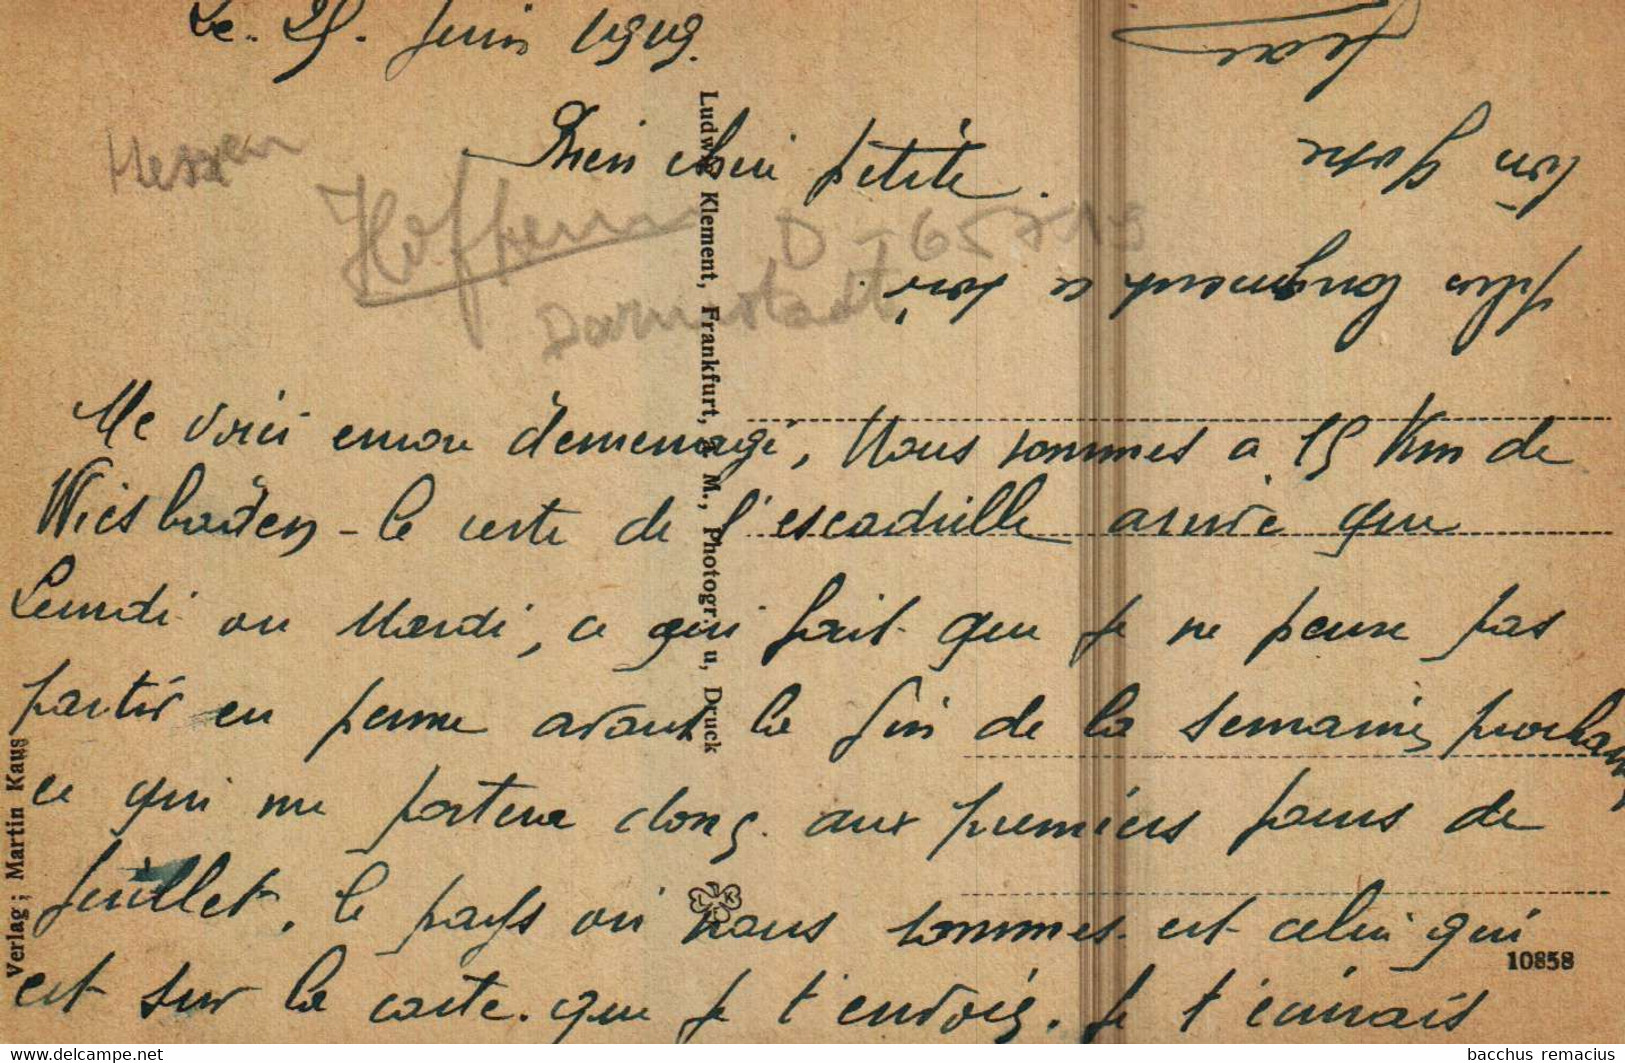 Le. 25. Juin 1919.
Mien cheri petite.
Me voici encore démenagé, Nous sommes a 15 Km de
Wiesbaden - le reste de l'escadrille arrive que
Lundi ou Mardi, ce qui fait que je ne pense pas
partir en perme avant la fin de la semaine, prochaine
ce qui me portera donc. aux premiers jours de
Juillet. le pays ou nous sommes est celui qui
est sur la carte. que je t'envois. Je t'écirais
plus longment ce soir.
Ton Votre
Jean
Hessen
Hoffenm D-65719
Darmstadt
Ludwig Klement, Frankfurt, a M., Photogr. u, Druck
Verlag; Martin Kaus
L K
10858
bacchus remacius
www.delcampe.net